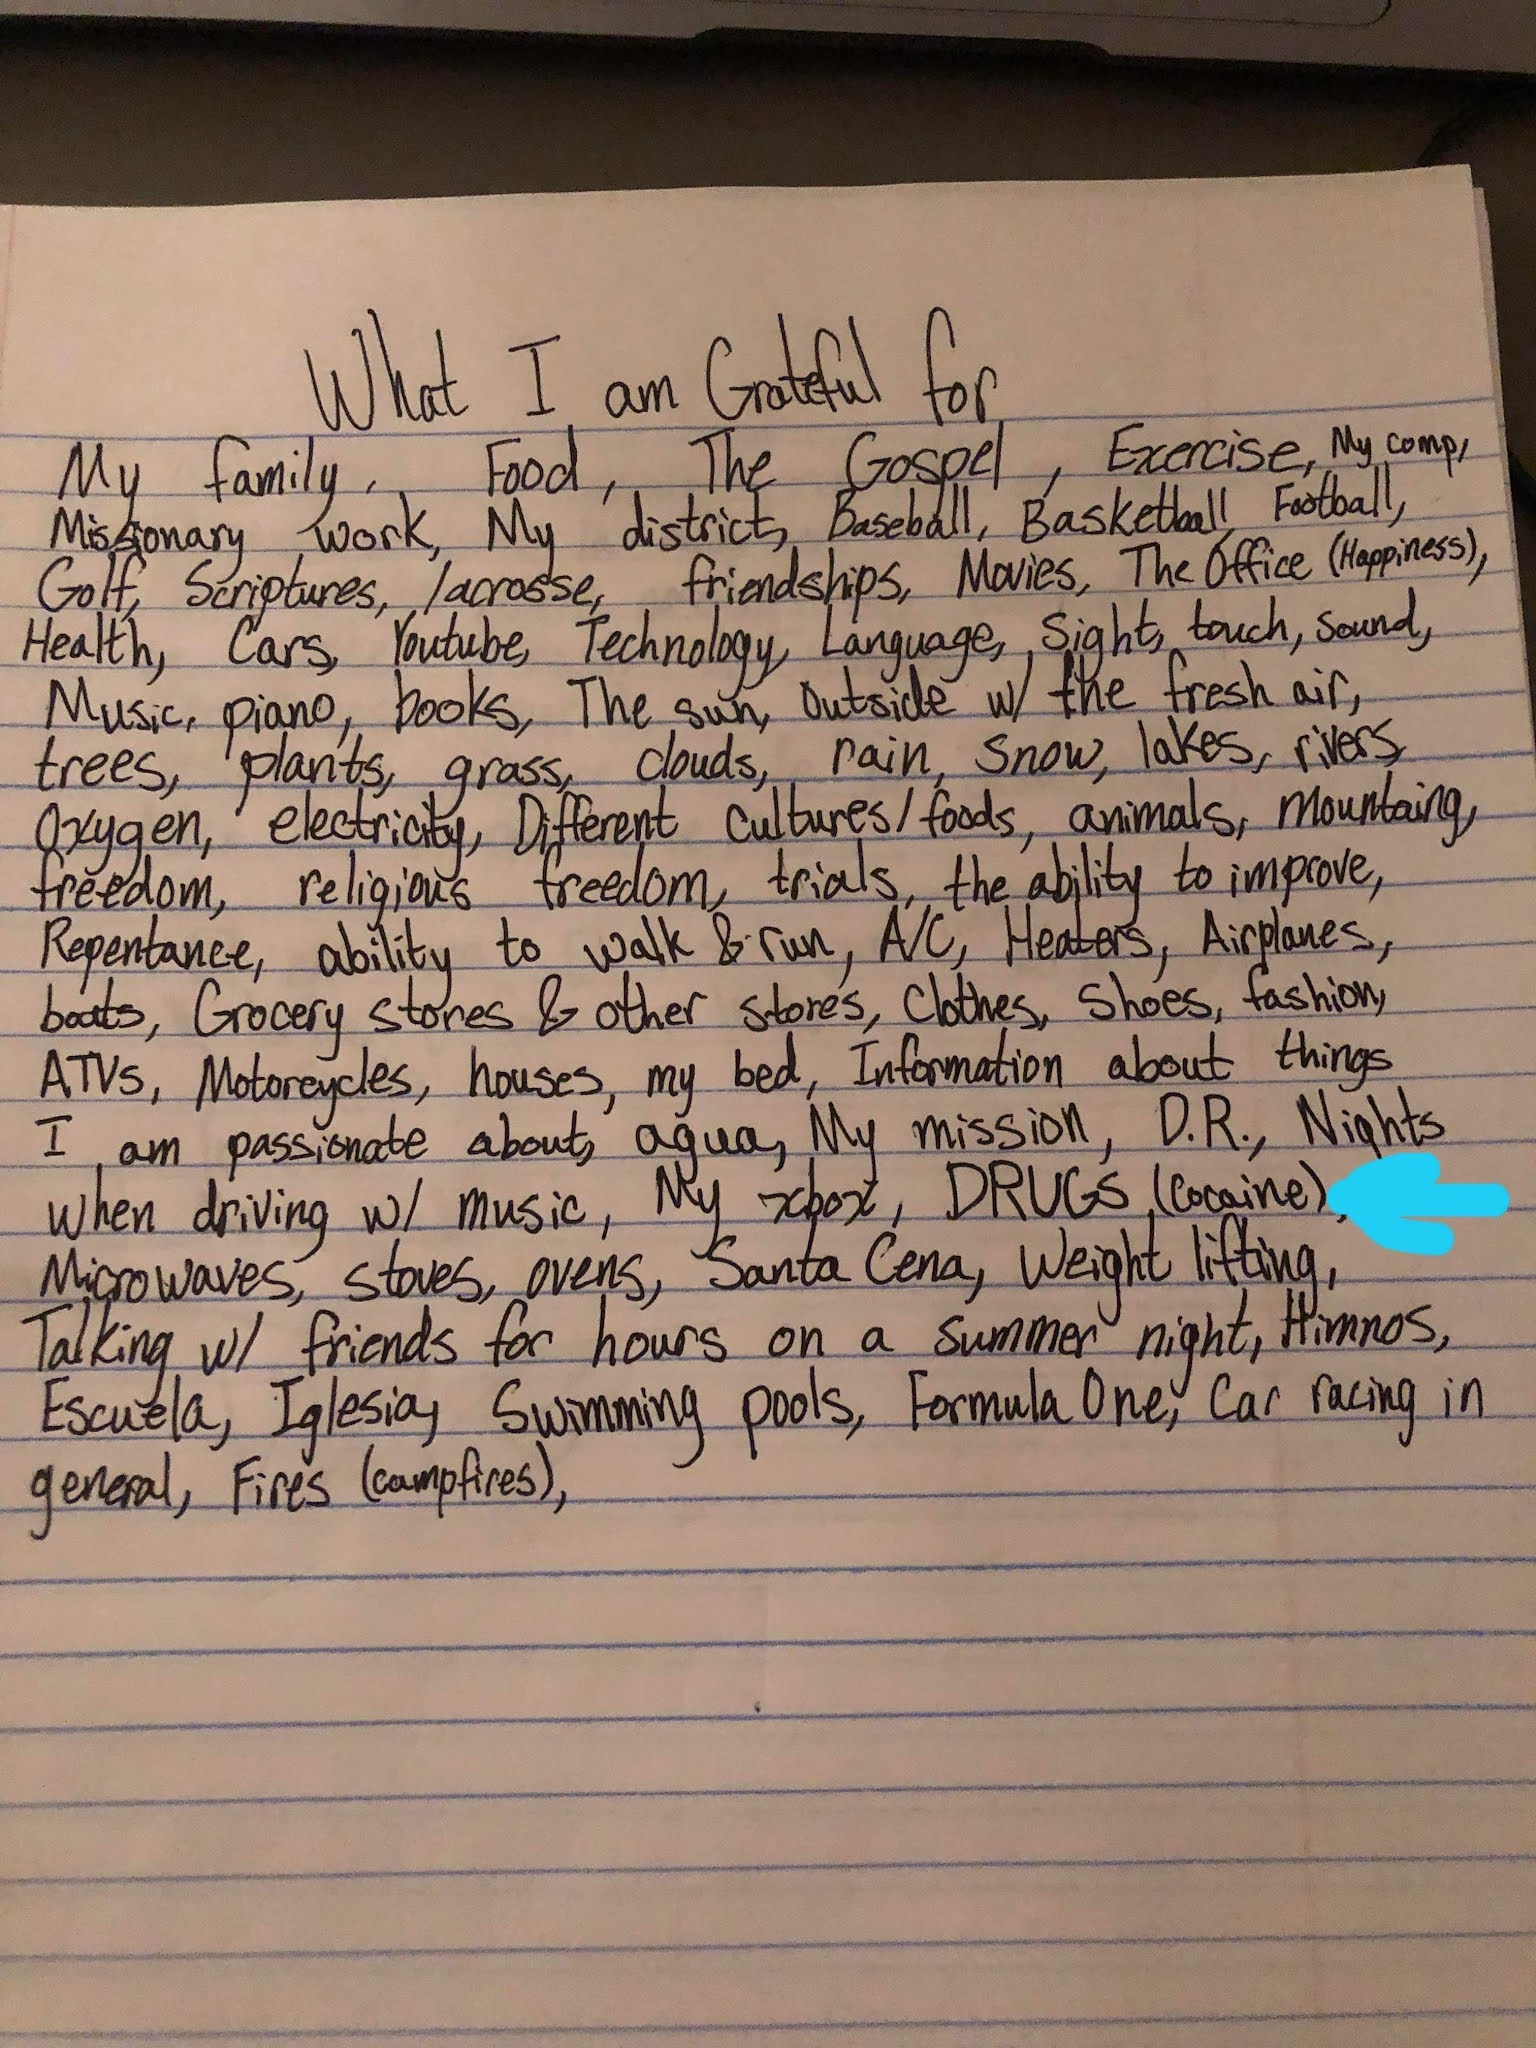 What I am Grateful for
My family, Food, The Gospel, Exercise, My comp,
Missionary work, My district, Baseball, Basketball, Football,
Golf, Scriptures, lacrosse, friendships, Movies, The Office (Happiness),
Health, Cars, Youtube, Technology, Language, Sight, touch, sound,
Music, piano, books, The sun, Outside w/ the fresh air,
trees, plants, grass, clouds, rain, snow, lakes, rivers,
Oxygen, electricity, Different cultures/foods, animals, mountaing,
freedom, religious freedom, trials, the ability to improve,
Repentance, ability to walk & run, A/C, Heaters, Airplanes,
boats, Grocery stores & other stores, Clothes, Shoes, fashion,
ATVs, Motorcycles, houses, my bed, Information about things
I am passionate about, agua, My mission, D.R., Nights
when driving w/ music, My xbox, DRUGS (Cocaine),
Microwaves, stoves, ovens, Santa Cena, Weight lifting,
Talking w/ friends for hours on a summer night, Himnos,
Escuela, Iglesia, Swimming pools, Formula One, Car racing in
general, Fires (campfires),